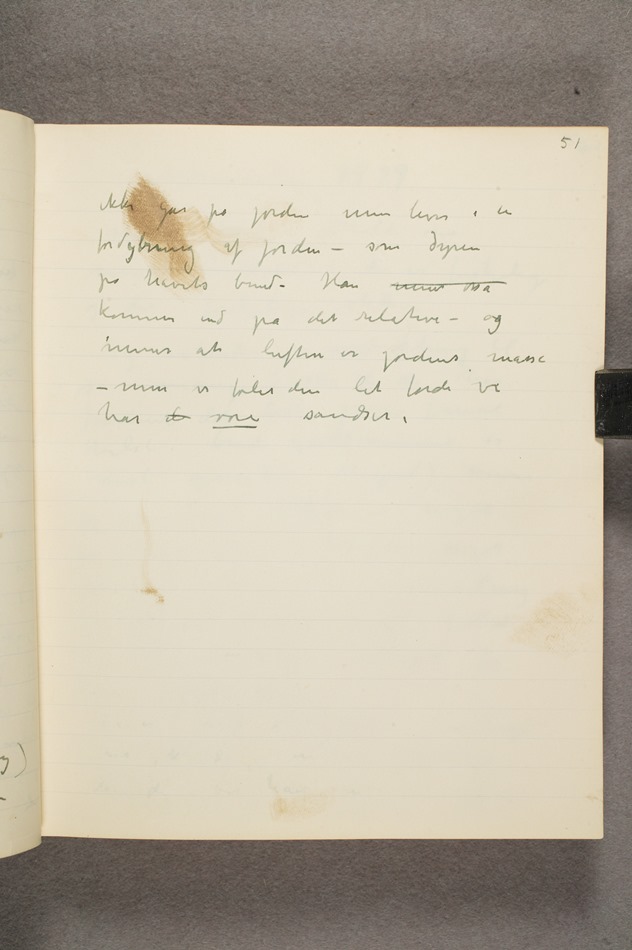 51
ikke går på jorden men lever i en
fordybning af jorden – som dyrene
på havets bund – Han mener også
kommer ind på det relative – og
mener at luften er jordens masse
– men vi føler den let fordi vi
har de vore sandser.